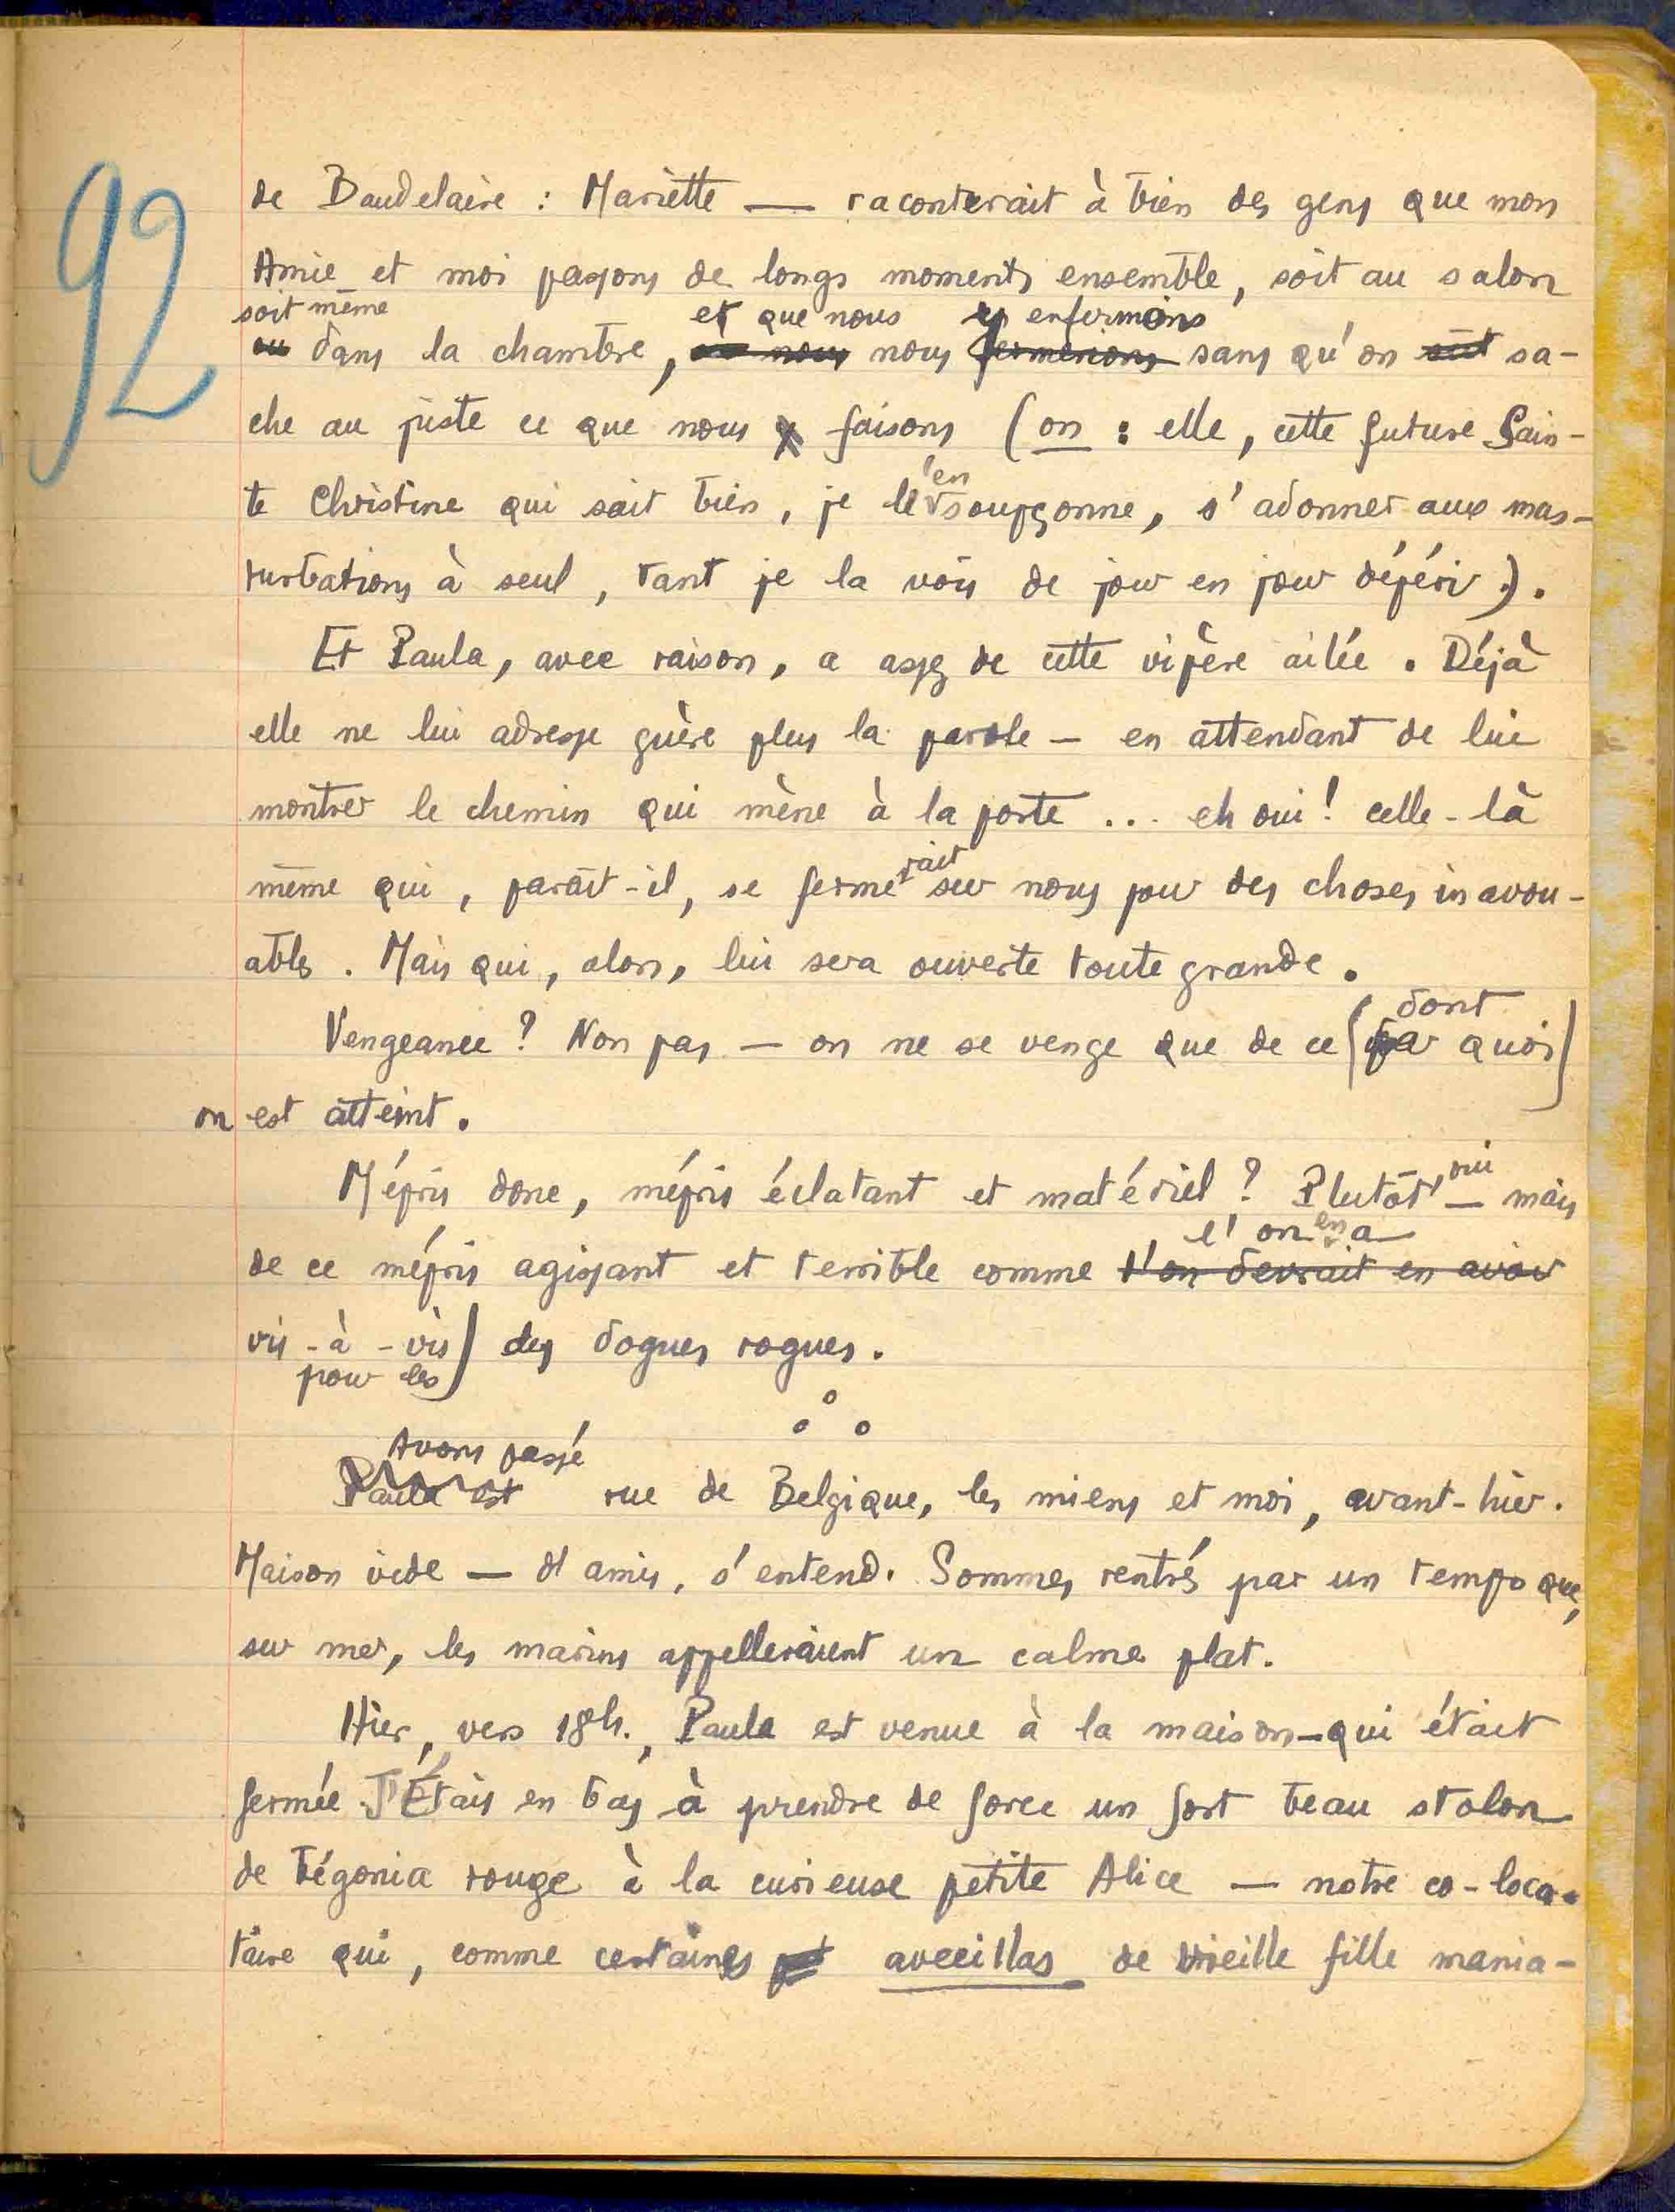 92
de Baudelaire : Mariette — raconterait à bien des gens que mon
Amie et moi passons de longs moments ensemble, soit au salon
soit même et que nous y enfermons
ou dans la chambre, ou nous nous fermerions sans qu'on sût sa-
che au juste ce que nous y faisons (on : elle, cette future Sain-
te Christine qui sait bien, je l'en soupçonne, s'adonner aux mas-
turbations à seul, tant je la vois de jour en jour dépérir).
Et Paula, avec raison, a assez de cette vipère ailée. Déjà
elle ne lui adresse guère plus la parole — en attendant de lui
montrer le chemin qui mène à la porte ... eh oui! celle-là
même qui, paraît-il, se fermerait sur nous pour des choses inavou-
ables. Mais qui, alors, lui sera ouverte toute grande.
dont
Vengeance ? Non pas — on ne se venge que de ce (par quoi)
on est atteint.
Mépris donc, mépris éclatant et matériel ? Plutôt, oui — mais
l'on en a
de ce mépris agissant et terrible comme l'on devrait en avoir
vis-à-vis) des dogues rogues.
pour les
Avons passé
Paula est rue de Belgique, les miens et moi, avant-hier.
Maison vide — d'amis, s'entend. Sommes rentrés par un temps que,
sur mer, les marins appelleraient un calme plat.
Hier, vers 18h., Paula est venue à la maison — qui était
fermée. J'Étais en bas à prendre de force un fort beau stolon
de bégonia rouge à la curieuse petite Alice — notre co-loca-
taire qui, comme certaines avecillas de vieille fille mania-